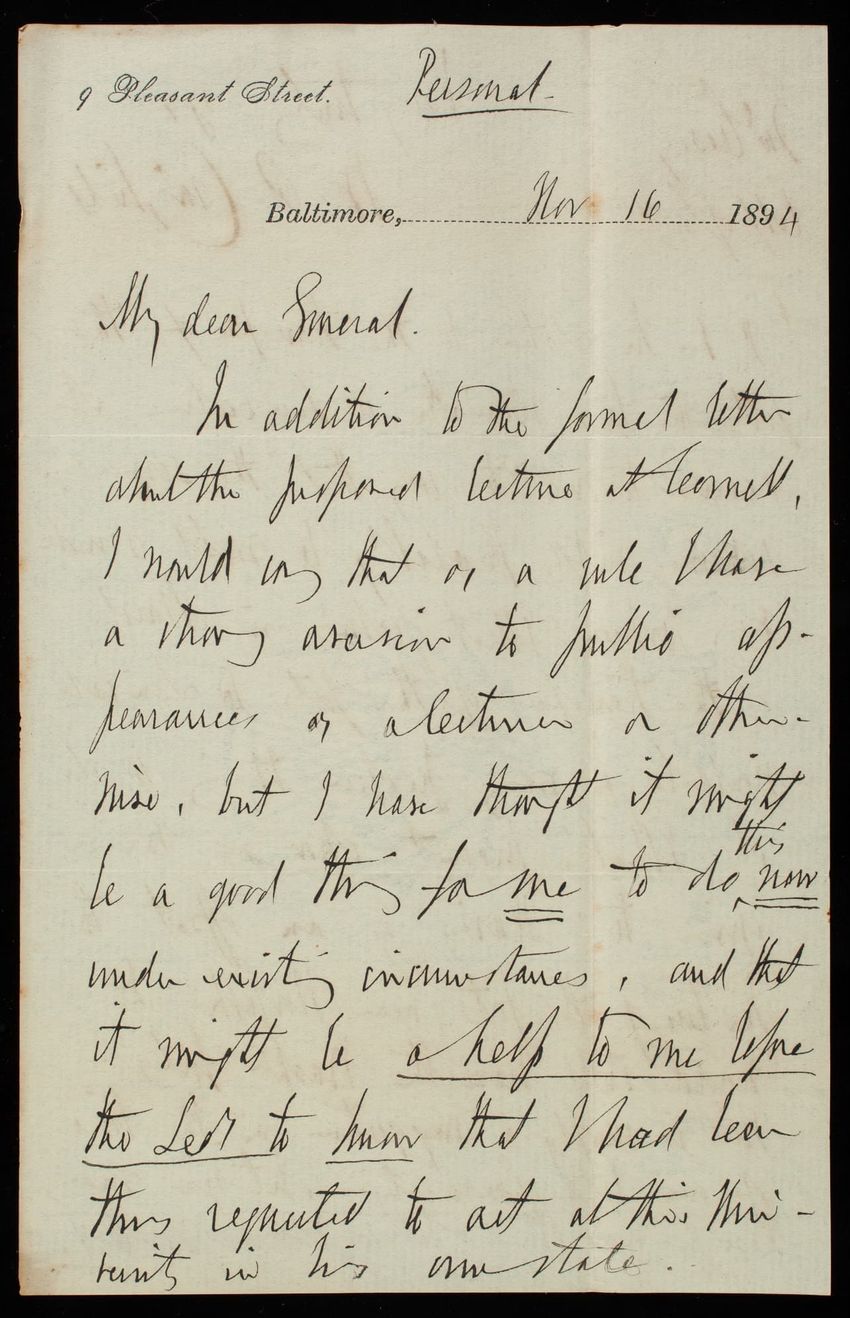 9 Pleasant Street.
Personal
Baltimore, Nov 16 1894
My dear General.
In addition to the formal letter
about the proposed lecture at Cornell,
I would say that as a rule I have
a strong aversion to public ap-
pearances as a lecturer or other-
wise, but I have thought it might
this
be a good thing for me to do now
under existing circumstances, and that
it might be a help to me before
the Secy to know that I had been
thus requested to act at this Uni-
versity in his own state.